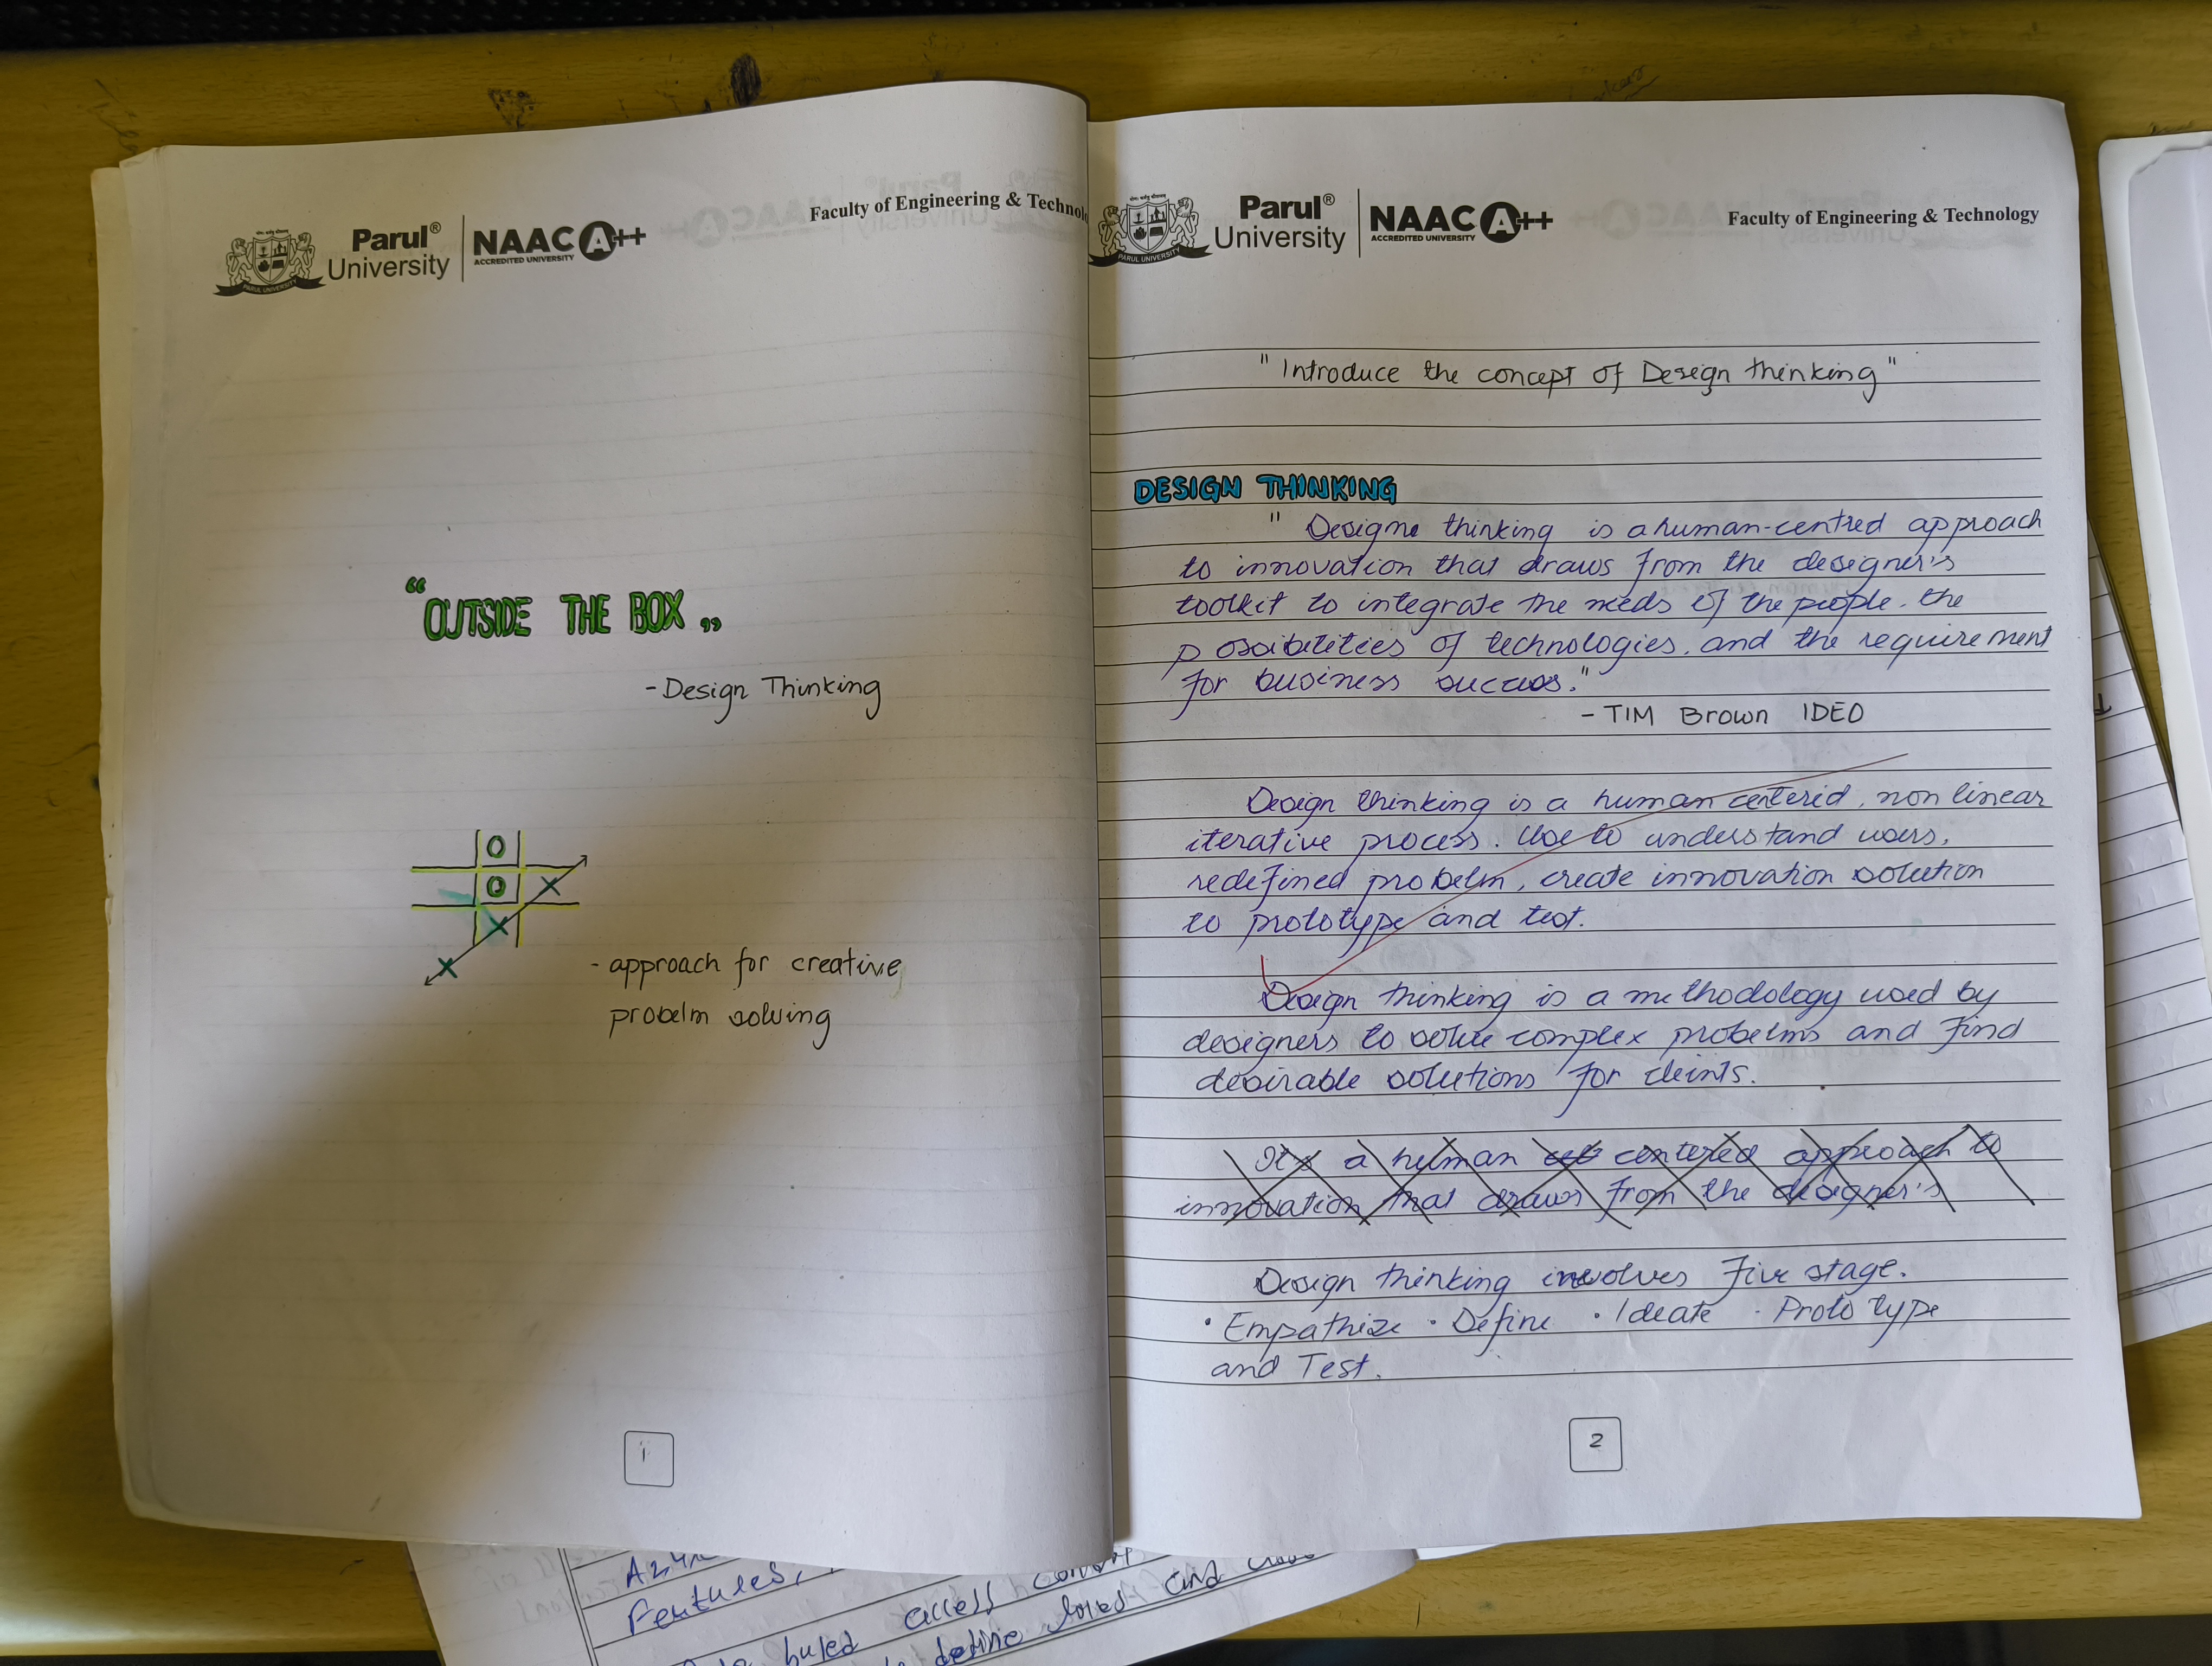 Parul®
University
NAAC A++
ACCREDITED UNIVERSITY
PARUL UNIVERSITY
Faculty of Engineering & Technol
“OUTSIDE THE BOX„
- Design Thinking
O
O X
X
X
- approach for creative
probelm solving
1
Parul®
University
NAAC A++
ACCREDITED UNIVERSITY
PARUL UNIVERSITY
Faculty of Engineering & Technology
"Introduce the concept of Design thinking"
DESIGN THINKING
" Designe thinking is a human-centred approach
to innovation that draws from the designer's
toolkit to integrate the needs of the people. the
possibilities of technologies. and the requirement
for business success."
- TIM Brown IDEO
Design thinking is a human centerid, non linear
iterative process. Use to understand users,
redefined probelm, create innovation solution
to prototype and test.
Design thinking is a methodology used by
designers to solve complex probelms and find
desirable solutions for cleints.
It's a human centered approach to
innovation that draws from the designer's
Design thinking involves five stage.
· Empathize · Define · Ideate · Prototype
and Test.
2
Features,
access
buled
define and